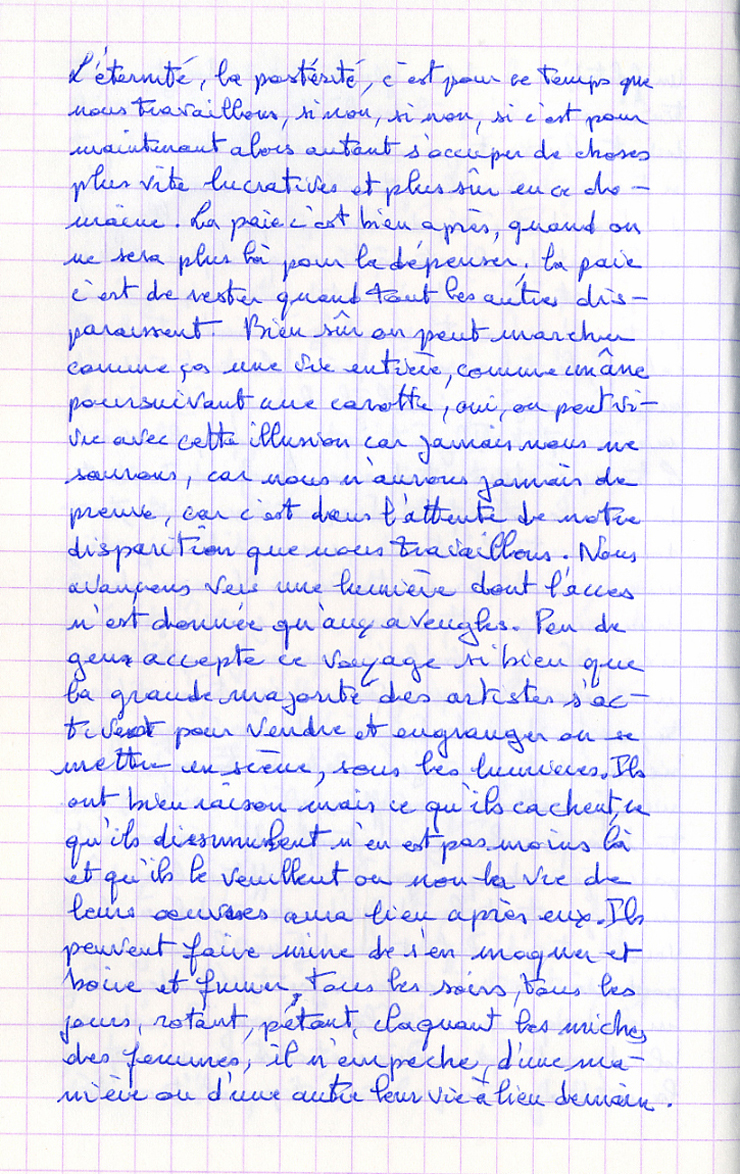 L'éternité, la postérité, c'est pour ce temps que
nous travaillons, sinon, sinon, si c'est pour
maintenant alors autant s'occuper de choses
plus vite lucratives et plus sûr en ce do-
maine. La paie c'est bien après, quand on
ne sera plus là pour la dépenser, la paie
c'est de rester quand tout les autres dis-
paraissent. Bien sûr on peut marcher
comme ça une vie entière, comme un âne
poursuivant une carotte, oui, on peut vi-
vre avec cette illusion car jamais nous ne
saurons, car nous n'aurons jamais de
preuve, car c'est dans l'attente de notre
disparition que nous travaillons. Nous
avançons vers une lumière dont l'accès
n'est donnée qu'aux aveugles. Peu de
gens accepte ce voyage si bien que
la grande majorité des artistes s'ac-
tivent pour vendre et engranger ou se
mettre en scène, sous les lumières. Ils
ont bien raison mais ce qu'ils cachent, ce
qu'ils dissimulent n'en est pas moins là
et qu'ils le veuillent ou non la vie de
leurs oeuvres aura lieu après eux. Ils
peuvent faire mine de s'en moquer et
boire et fumer tous les soirs, tous les
jours, rotant, pétant, claquant les miches
des femmes, il n'empêche, d'une ma-
nière ou d'une autre leur vie à lieu demain.